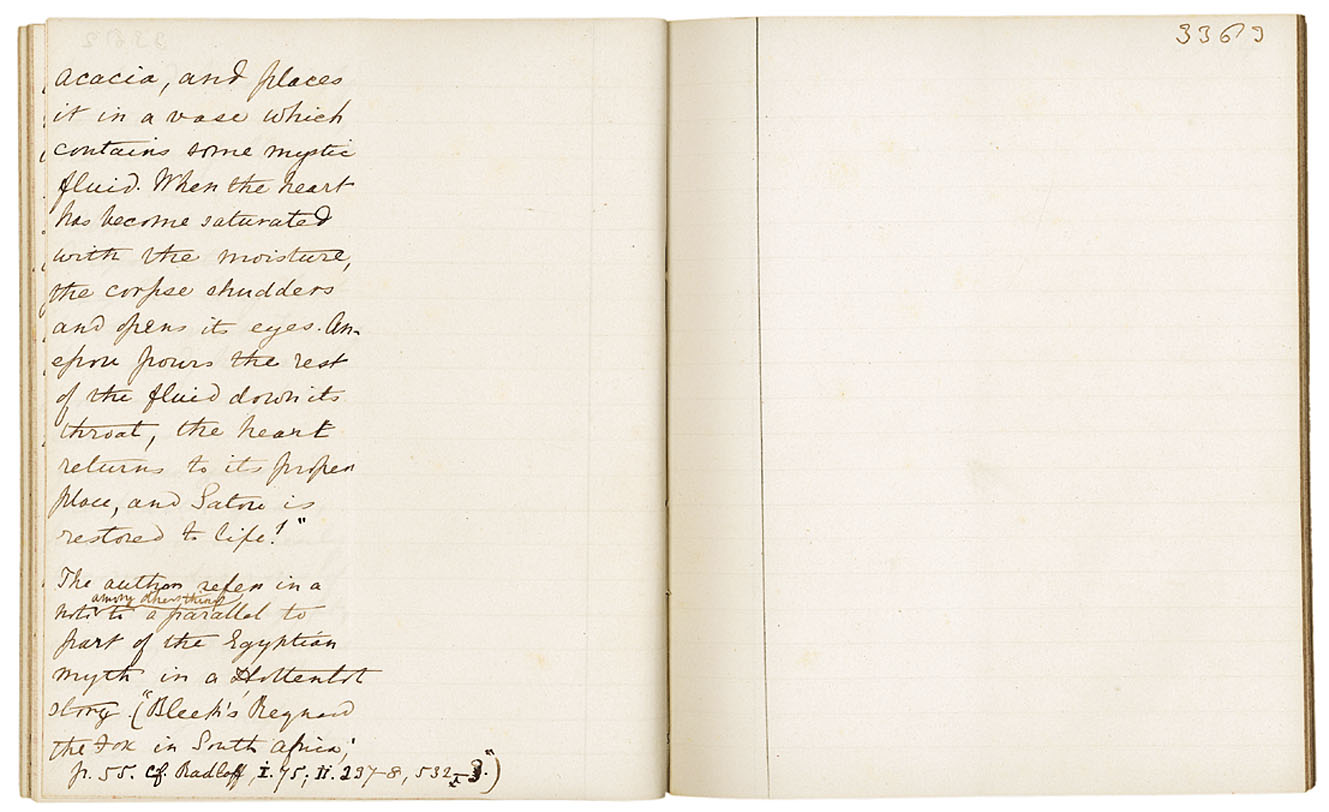 acacia, and places
it in a vase which
contains some mystic
fluid. When the heart
has become saturated
with the moisture,
the corpse shudders
and opens its eyes. An-
epou pours the rest
of the fluid down its
throat, the heart
returns to its proper
place, and Satou is
restored to life!"
The author refers in a
among other things
note to a parallel to
part of the Egyptian
myth in a Hottentot
story. ("Bleek's 'Reynard
the Fox in South Africa,'
p. 55. Cf. Radloff, I. 75; II. 237-8, 532-3.")
3363